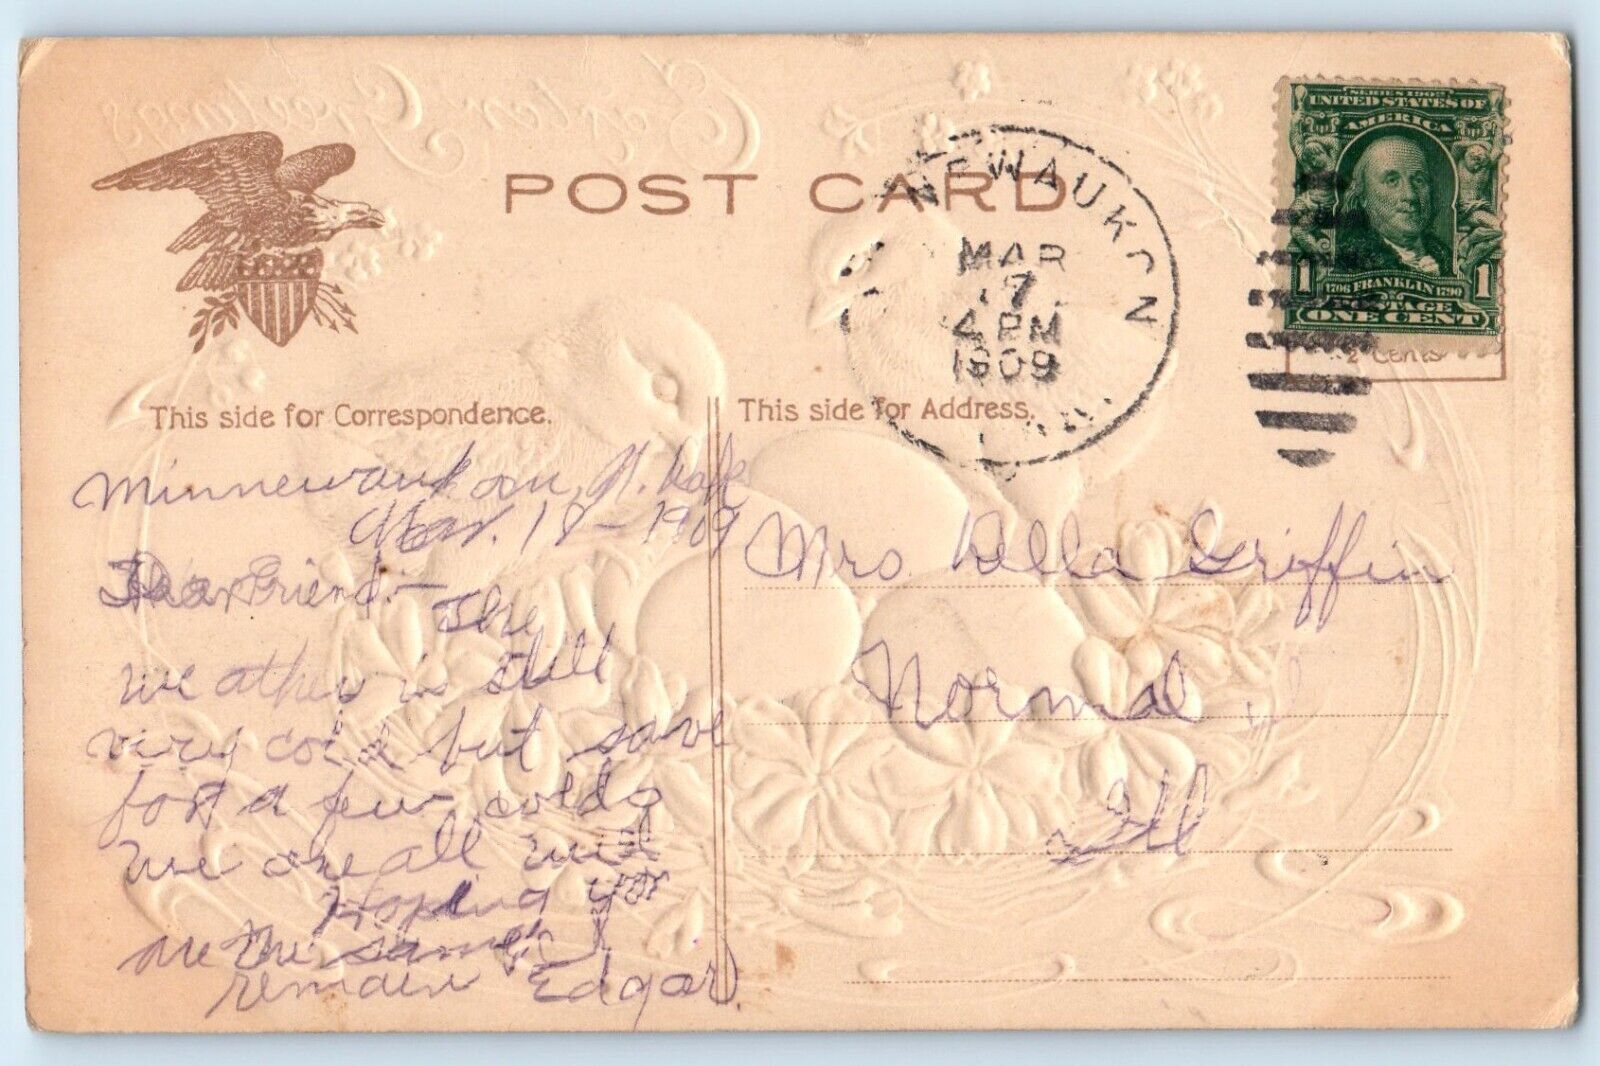 Easter Greetings
POST CARD
NEWAUKON
MAR
17
4 PM
1909
SERIES 1902
UNITED STATES OF
AMERICA
1 1706 FRANKLIN 1790 1
POSTAGE
ONE CENT
2 Cents
This side for Correspondence.
This side for Address.
Minnewaukon, N. Dak
Mar. 18-1909
Dear Friend:-
The
weather is still
very cold but save
for a few colds
we are all well
Hoping you
are the same I
remain Edgar.
Mrs Della Griffin
Normal
Ill